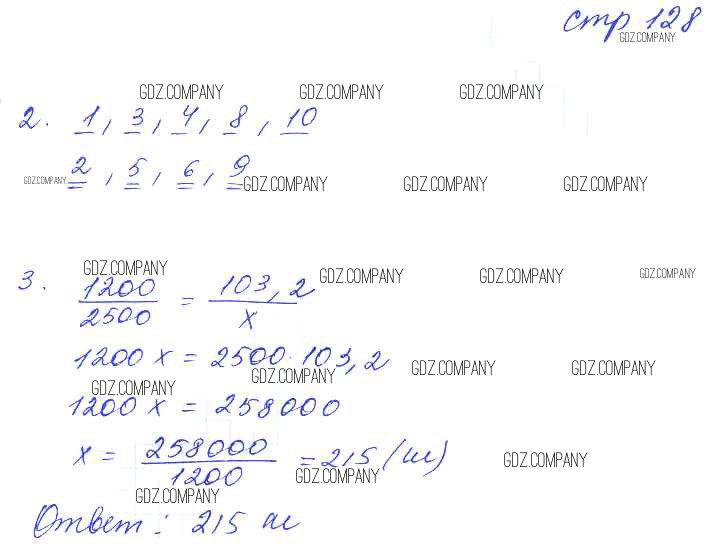 стр 128
GDZ.COMPANY
GDZ.COMPANY GDZ.COMPANY GDZ.COMPANY
2. 1, 3, 4, 8, 10
2, 5, 6, 9
GDZ.COMPANY GDZ.COMPANY GDZ.COMPANY GDZ.COMPANY
GDZ.COMPANY GDZ.COMPANY GDZ.COMPANY GDZ.COMPANY
3. 1200/2500 = 103,2/x
1200 x = 2500 · 103,2
GDZ.COMPANY GDZ.COMPANY GDZ.COMPANY
GDZ.COMPANY
1200 x = 258000
x = 258000/1200 = 215 (м)
GDZ.COMPANY GDZ.COMPANY
GDZ.COMPANY
Ответ: 215 м